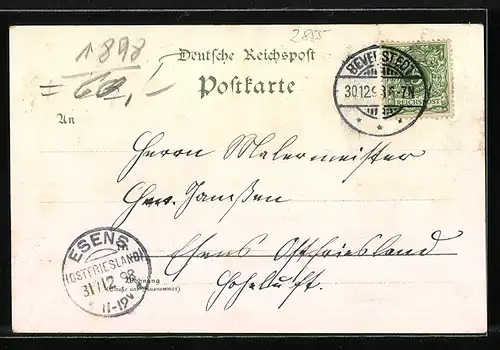 1898
2855
Deutsche Reichspost
Postkarte
BEVERSTEDT
30.12.98.6-7N
REICHSPOST
An
Herrn Malermeister
Janssen
Esens Ostfriesland
ESENS
(OSTFRIESLAND)
31/12 98
11-12V
Wohnung
(Straße und Hausnummer)